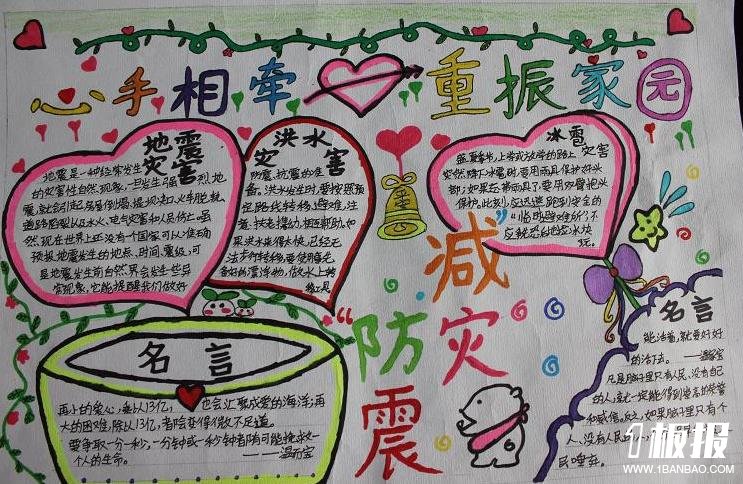 心手相牵 重振家园
地震
灾害
地震是一种经常发生
的灾害性自然现象,一旦发生强烈地
震,就会引起房屋倒塌、
道路断裂以及水火、电气灾害和人员伤亡。虽
然,现在世界上还没有一个国家可以准确
预报地震发生的地点、时间、震级,可
是地震发生前自然界会发生些异
常现象,它能提醒我们做好
洪水
灾害
防震、抗震的准
备。洪水发生时,要按照预
定路线转移、避难,注
意扶老携幼,相互帮助。如
果洪水来得太快,已经无
法步行转移,要使用事先
备好的漂浮物,做水上转
移工具
冰雹
灾害
盛夏季节,上学或放学的路上
突然降下冰雹时,要用雨具保护好头
部;如果不带雨具,要用双臂抱头
保护。此刻,应迅速跑到安全的
“临时避难所”,不
应就恐白地位冰块
玩。
“防震
减灾”
名言
再小的爱心,乘以13亿,也会汇聚成爱的海洋;再
大的困难,除以13亿,都会变得微不足道。
要争取一分一秒,一分钟或一秒钟都有可能挽救一
个人的生命。
——温家宝
名言
能活着,就要好好
的活下去。——温家宝
凡是脑子里只有人民、没有自己
的人,就一定能得到崇高的荣誉
和威信。反之,如果脑子里只有个
人、没有人民的人,
民唾弃。
板报
WWW.1BANBAO.COM